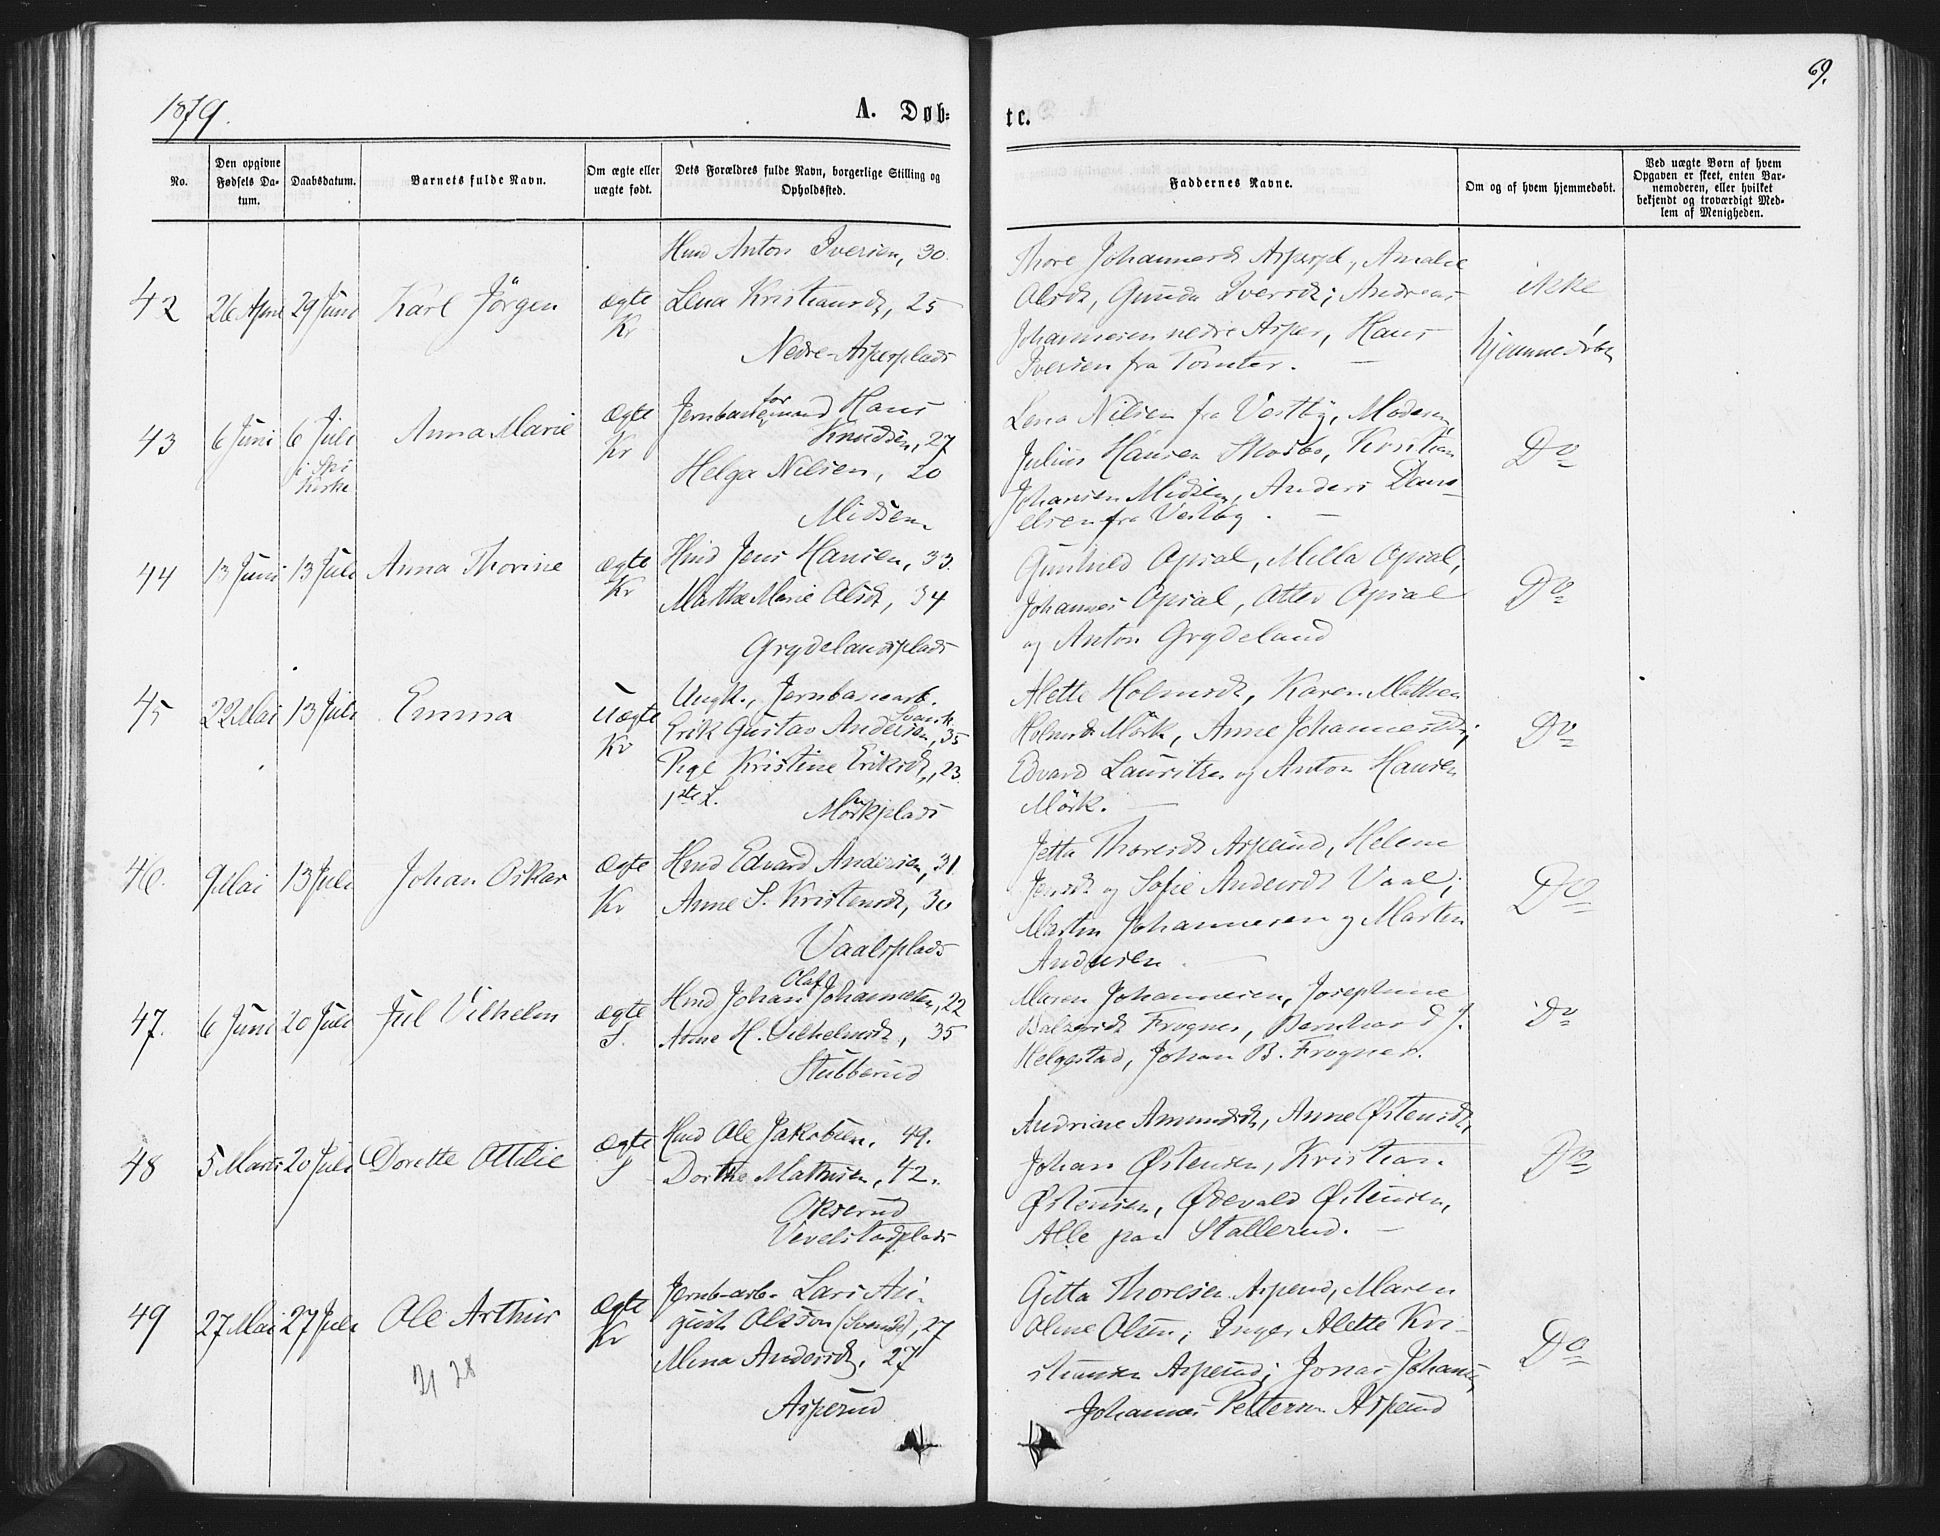 1879.
A. Døb-
te.
69.
No.
Den opgivne Fødsels Da-tum.
Daabsdatum.
Barnets fulde Navn.
Om ægte eller uægte født.
Dets Forældres fulde Navn, borgerlige Stilling og Opholdssted.
Faddernes Navne.
Om og af hvem hjemmedøbt.
Ved uægte Børn af hvem Opgaven er skeet, enten Bar-nemoderen, eller hvilket bekjendt og troværdigt Med-lem af Menigheden.
Hmd Anton Iversen, 30.
42 26 April 29 Juni Karl Jörgen ægte Lena Kristiansdt, 25
Kr
Nedre-Asperplads
Thore Johannesdt Asperpl., Amalie
Olsdt, Gunda Iversdt; Andreas
Johannesen nedre Asper, Hans
Iversen fra Tomter. —
ikke
hjemmedøbt
43 6 Juni 6 Juli Anna Marie ægte Jernbaneformand Hans
i Ski Kirke
Kr Knudsen, 27
Helga Nilsen, 20
Midsem
Lena Nilsen fra Vestby, Moderen,
Julius Hansen Skosbo, Kristian
Johansen Midsem, Anders Dani-
elsen fra Vestby. —
Do
44 13 Juni 13 Juli Anna Thorine ægte Hmd Jens Hansen, 33.
Kr Marthe Marie Olsdt, 34
Grydelandsplads
Gunhild Opsal, Milla Opsal,
Johannes Opsal, Otter Opsal
og Anton Grydeland
Do
45 22 Mai 13 Juli Emma Uægte Ungk., Jernbanearb.
Kr Erik Gustav Andersen, Svensk. 35
Pige Kristine Eriksdt, 23.
1ste L. Mörkplads
Alette Holmsdt, Karen Mathea
Holmsdt Mörk, Anne Johannesdt;
Edvard Lauritzen og Anton Hansen
Mörk. —
Do
46. 9 Mai 13 Juli Johan Oskar ægte Hmd Edvard Andersen, 31
Kr Anne S. Kristensdt, 30
Vaalsplads
Jetta Thoresdt Asperud, Helene
Jensdt og Sofie Andersdt Vaal;
Martin Johannesen og Martin
Andersen. —
Do
47. 6 Juni 20 Juli Jul Vilhelm ægte Hmd Johan Olaf Johannesen, 22
S. Anne H. Vilhelmsdt, 35
Stubberud
Maren Johannesen, Josephine
Balzersdt Frogner, Bernhard J.
Helgestad, Johan B. Frogner.
Do
48 5 Marts 20 Juli Dorette Ottilie ægte Hmd Ole Jakobsen, 49.
S Dorthe Mathisen, 42.
Okserud
Vevelstadplads
Andrine Amundsdt, Anne Østensdt,
Johan Østensen, Kristian
Østensen, Ødevald Østensen,
Alle paa Stallerud. —
Do
49 27 Mai 27 Juli Ole Arthur ægte Jernb-arb. Lars Au-
Kr gust Olsson (svensk), 27
Mina Andersdt, 27
Asperud
21 28
Gitta Thoresen Asperud, Maren
Oline Olsen; Inger Alette Kri-
stiansen Asperud; Jonas Johans,
Johannes Pettersen Asperud
Do